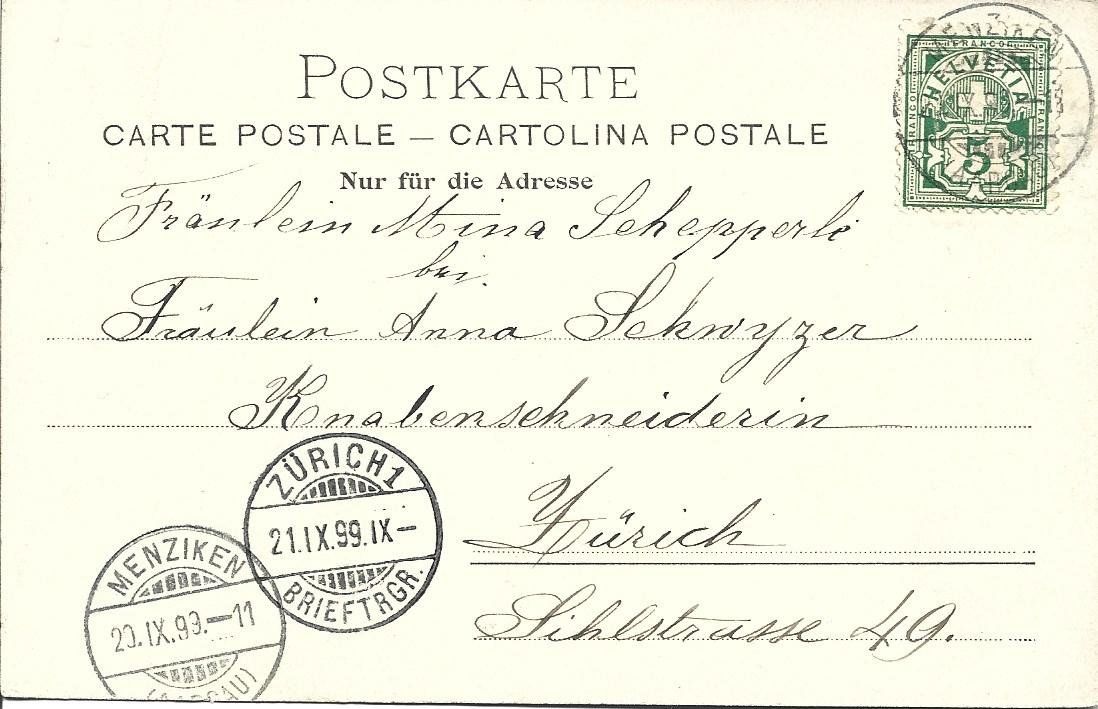 POSTKARTE
CARTE POSTALE — CARTOLINA POSTALE
Nur für die Adresse
FRANCO
HELVETIA
FRANCO
FRANCO
5
Fräulein Mina Schepperle
bei
Fräulein Anna Schwyzer
Knabenschneiderin
Zürich
Sihlstrasse 49.
ZÜRICH 1
21.IX.99.IX—
BRIEFTRGR.
MENZIKEN
20.IX.99.—11
(AARGAU)